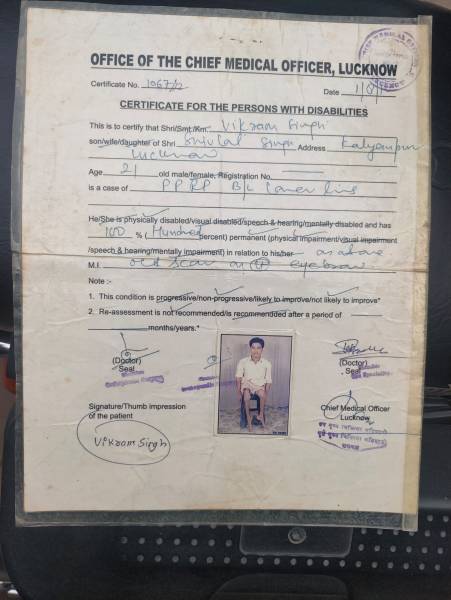 OFFICE OF THE CHIEF MEDICAL OFFICER, LUCKNOW
Certificate No. 1067/2 Date
CERTIFICATE FOR THE PERSONS WITH DISABILITIES
This is to certify that Shri/Smt./Km. Vikram Singh
son/wife/daughter of Shri Shivlal Singh Address Kalyanpur
Lucknow
Age 21 old male/female, Registration No.
is a case of PPRP B/L Lower Limb
He/She is physically disabled/visual disabled/speech & hearing/mentally disabled and has
100 % (Hundred percent) permanent (physical impairment/visual impairment
/speech & hearing/mentally impairment) in relation to his/her as above
M.I. old scar on eyebrow
Note :-
1. This condition is progressive/non-progressive/likely to improve/not likely to improve*
2. Re-assessment is not recommended/is recommendded after a period of
months/years.*
(Doctor) (Doctor)
Seal Seal
Signature/Thumb impression Chief Medical Officer
of the patient Lucknow
Vikram Singh